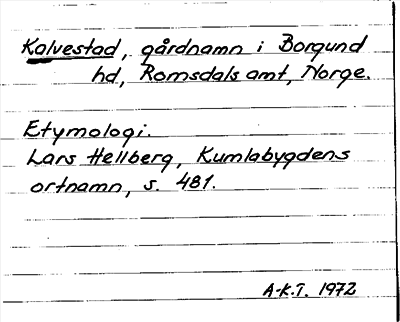 Kalvestad, gårdnamn i Borgund
hd, Romsdals amt, Norge.
Etymologi.
Lars Hellberg, Kumlabygdens
ortnamn, s. 481.
A-K.T. 1972